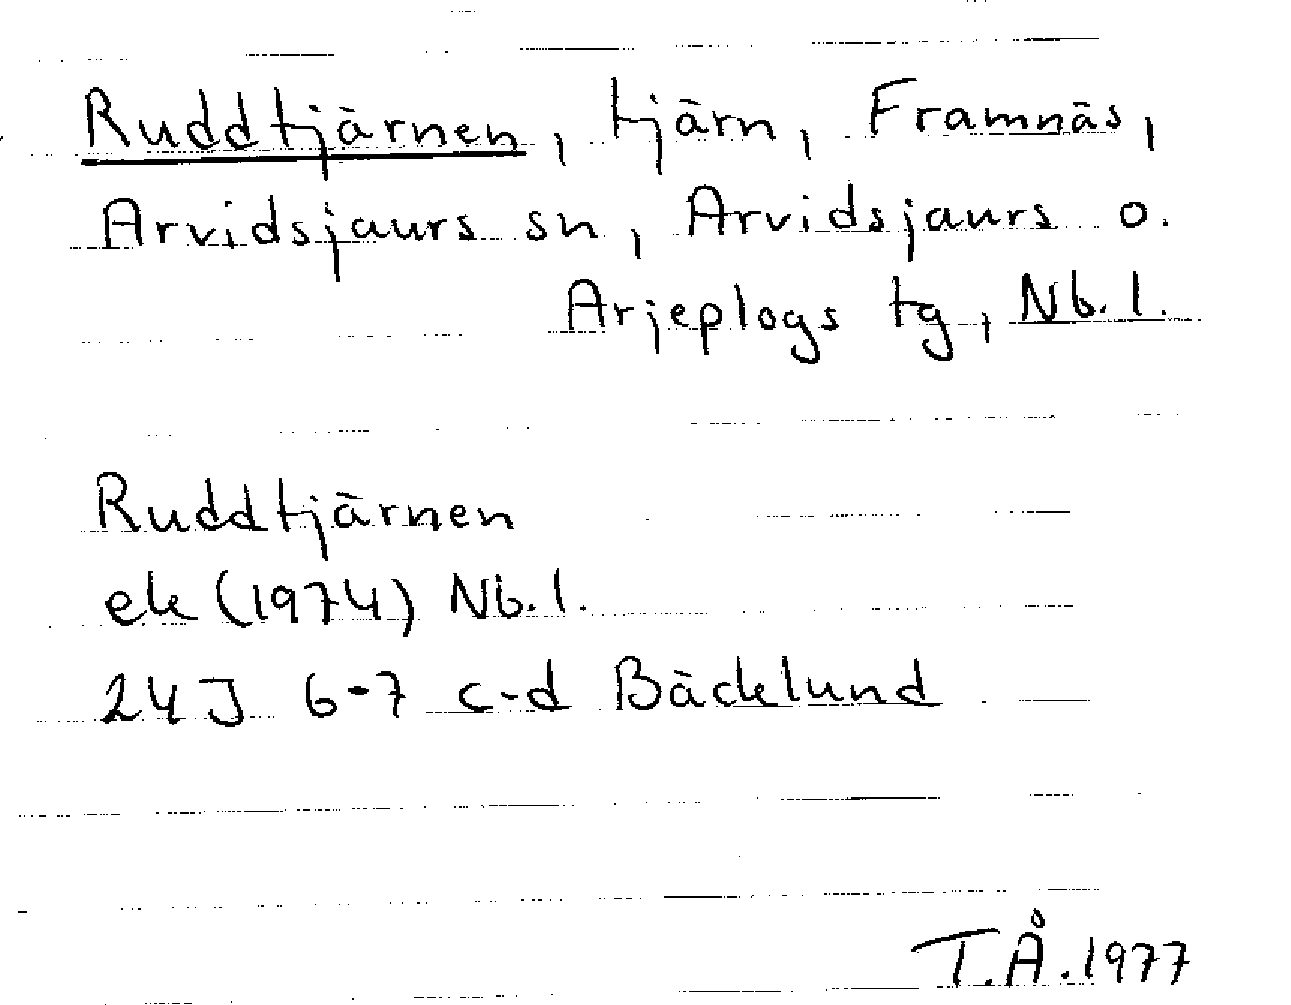 Ruddtjärnen, tjärn, Framnäs,
Arvidsjaurs sn, Arvidsjaurs o.
Arjeplogs tg, Nb. l.
Ruddtjärnen
ek (1974) Nb. l.
24 J 6-7 c-d Bäcklund
T.Å. 1977